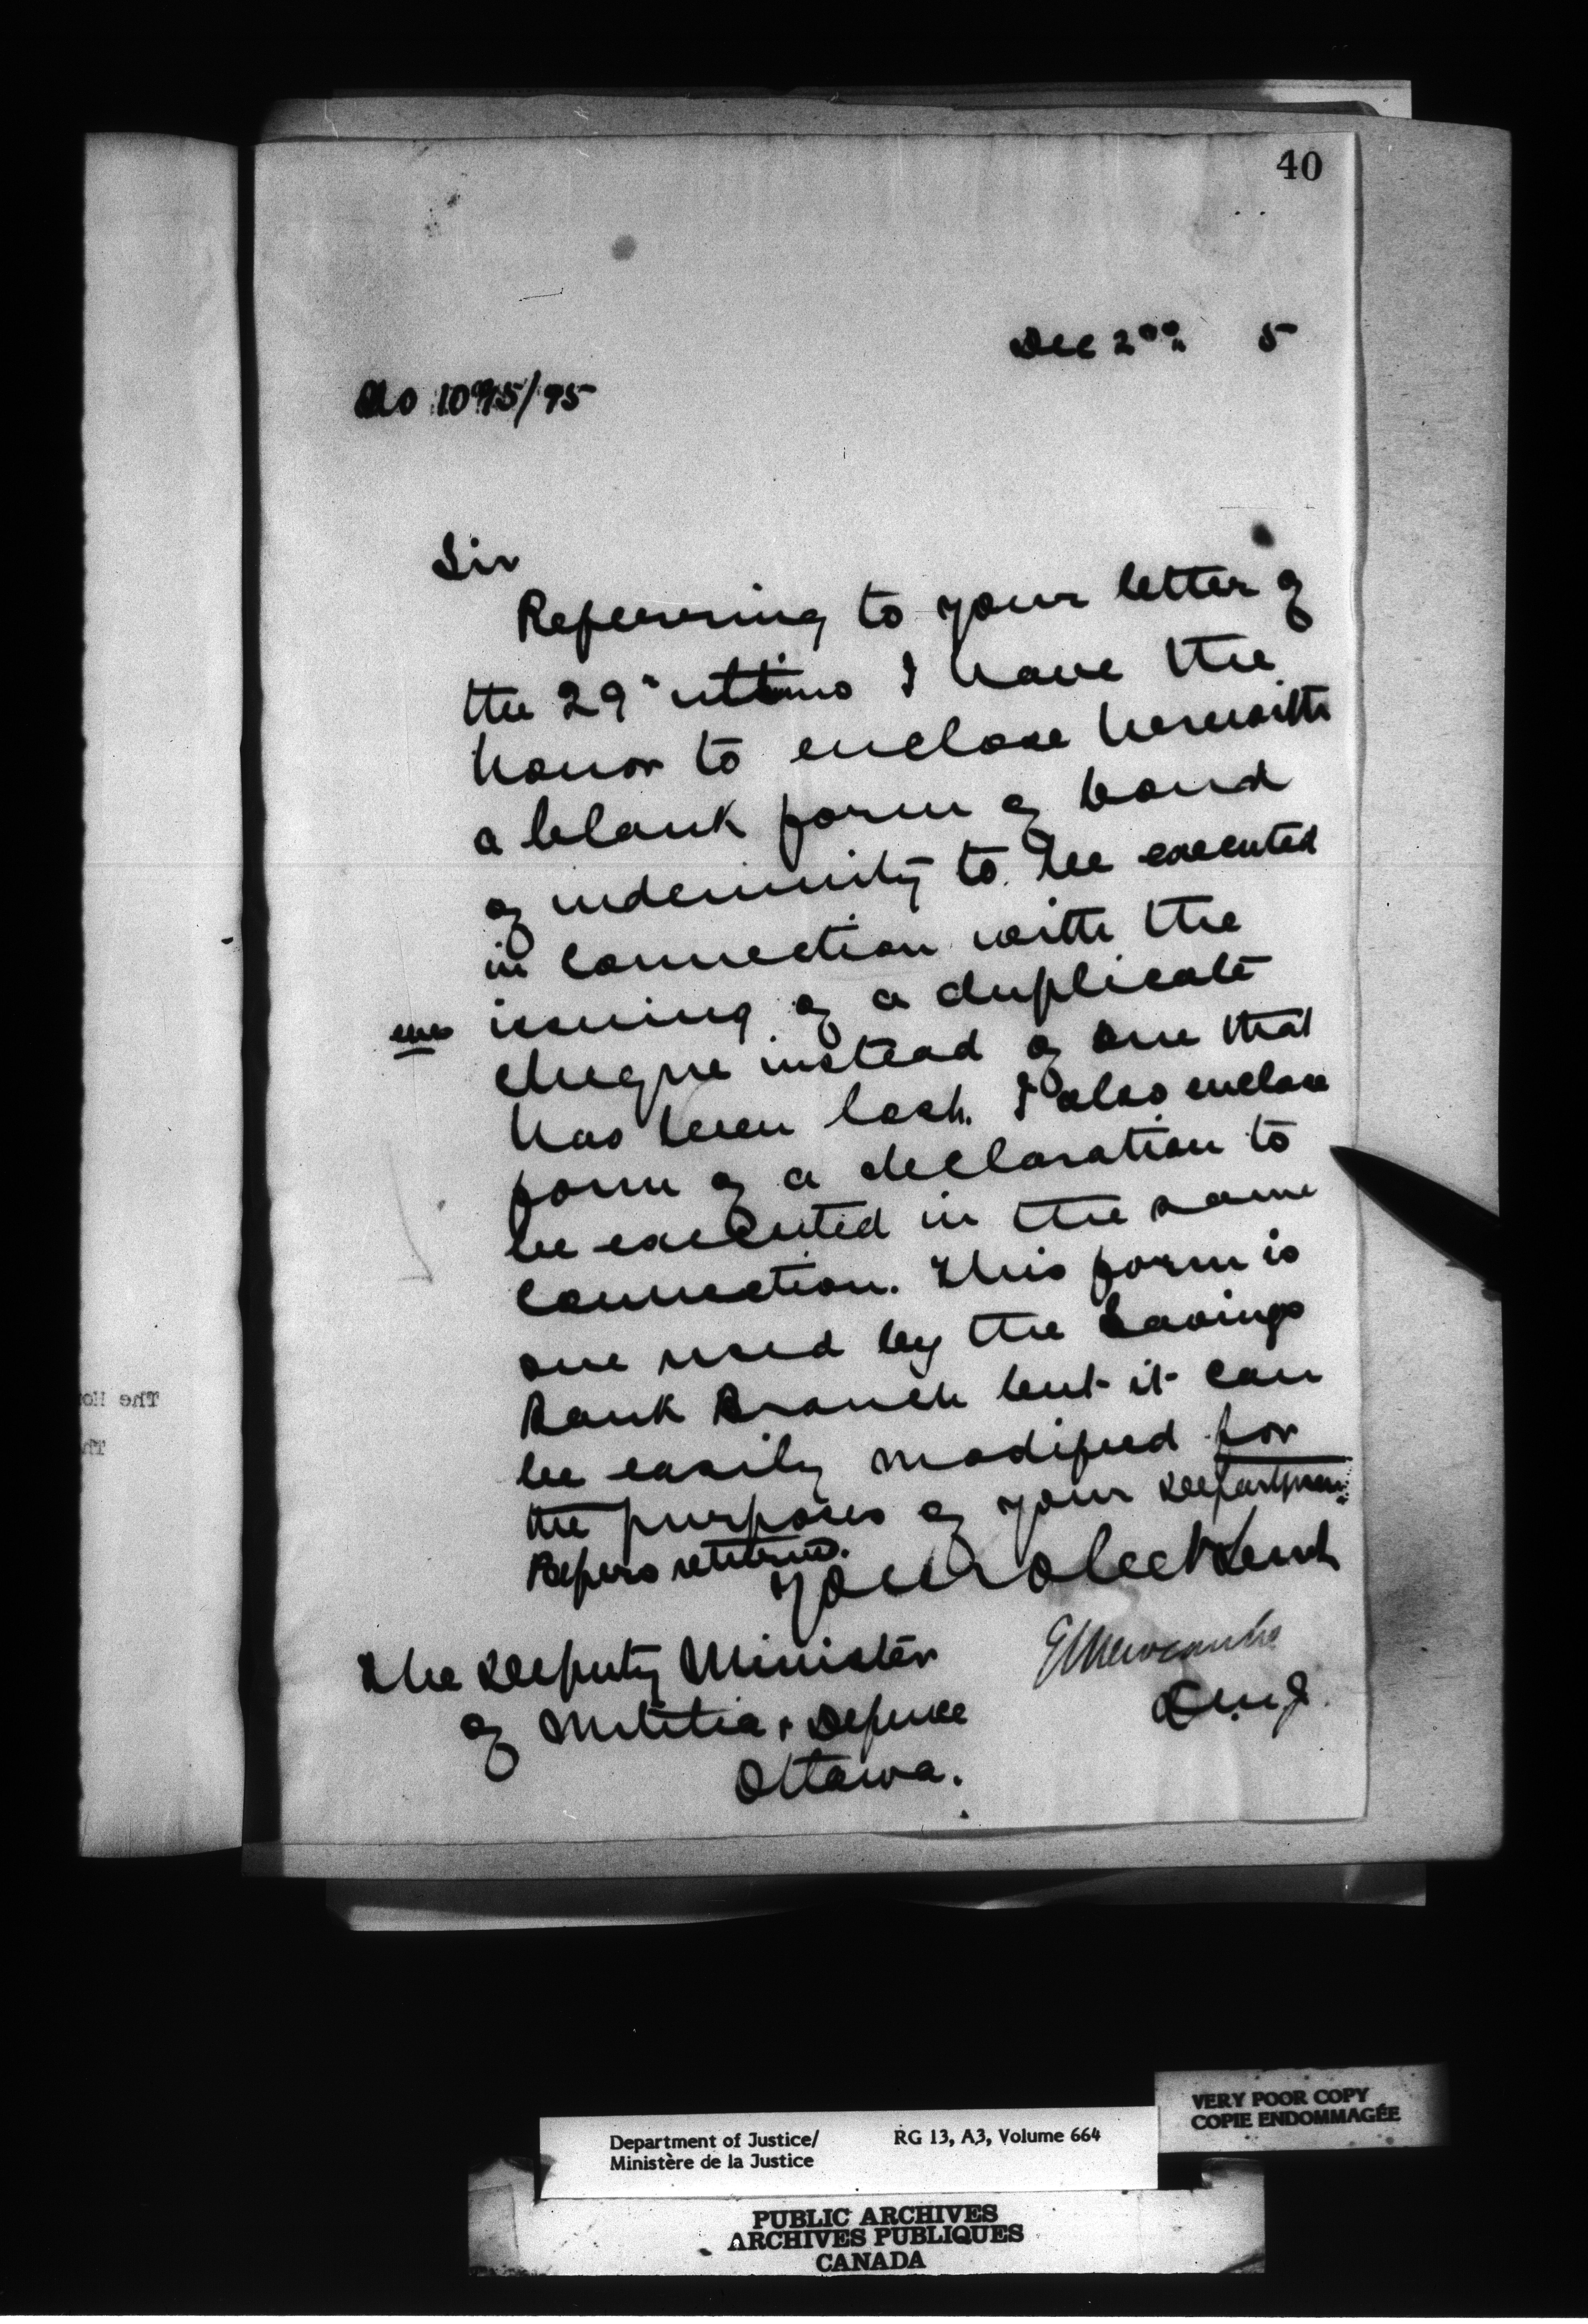 40
Dec 2nd 5
No 1095/95
Sir
Referring to your letter of
the 29" ultimo I have the
honor to enclose herewith
a blank form of bond
of indemnity to be executed
in connection with the
issuing of a duplicate
encs
cheque instead of one that
has been lost. I also enclose
form of a declaration to
be executed in the same
connection. This form is
one used by the Savings
Bank Branch but it can
be easily modified for
the purposes of your Department
Papers returned.
Your obedt Servt
E L Newcombe
D.M.J.
The Deputy Minister
of Militia & Defence
Ottawa.
The Ho
Th
Department of Justice/
Ministère de la Justice
RG 13, A3, Volume 664
VERY POOR COPY
COPIE ENDOMMAGÉE
PUBLIC ARCHIVES
ARCHIVES PUBLIQUES
CANADA